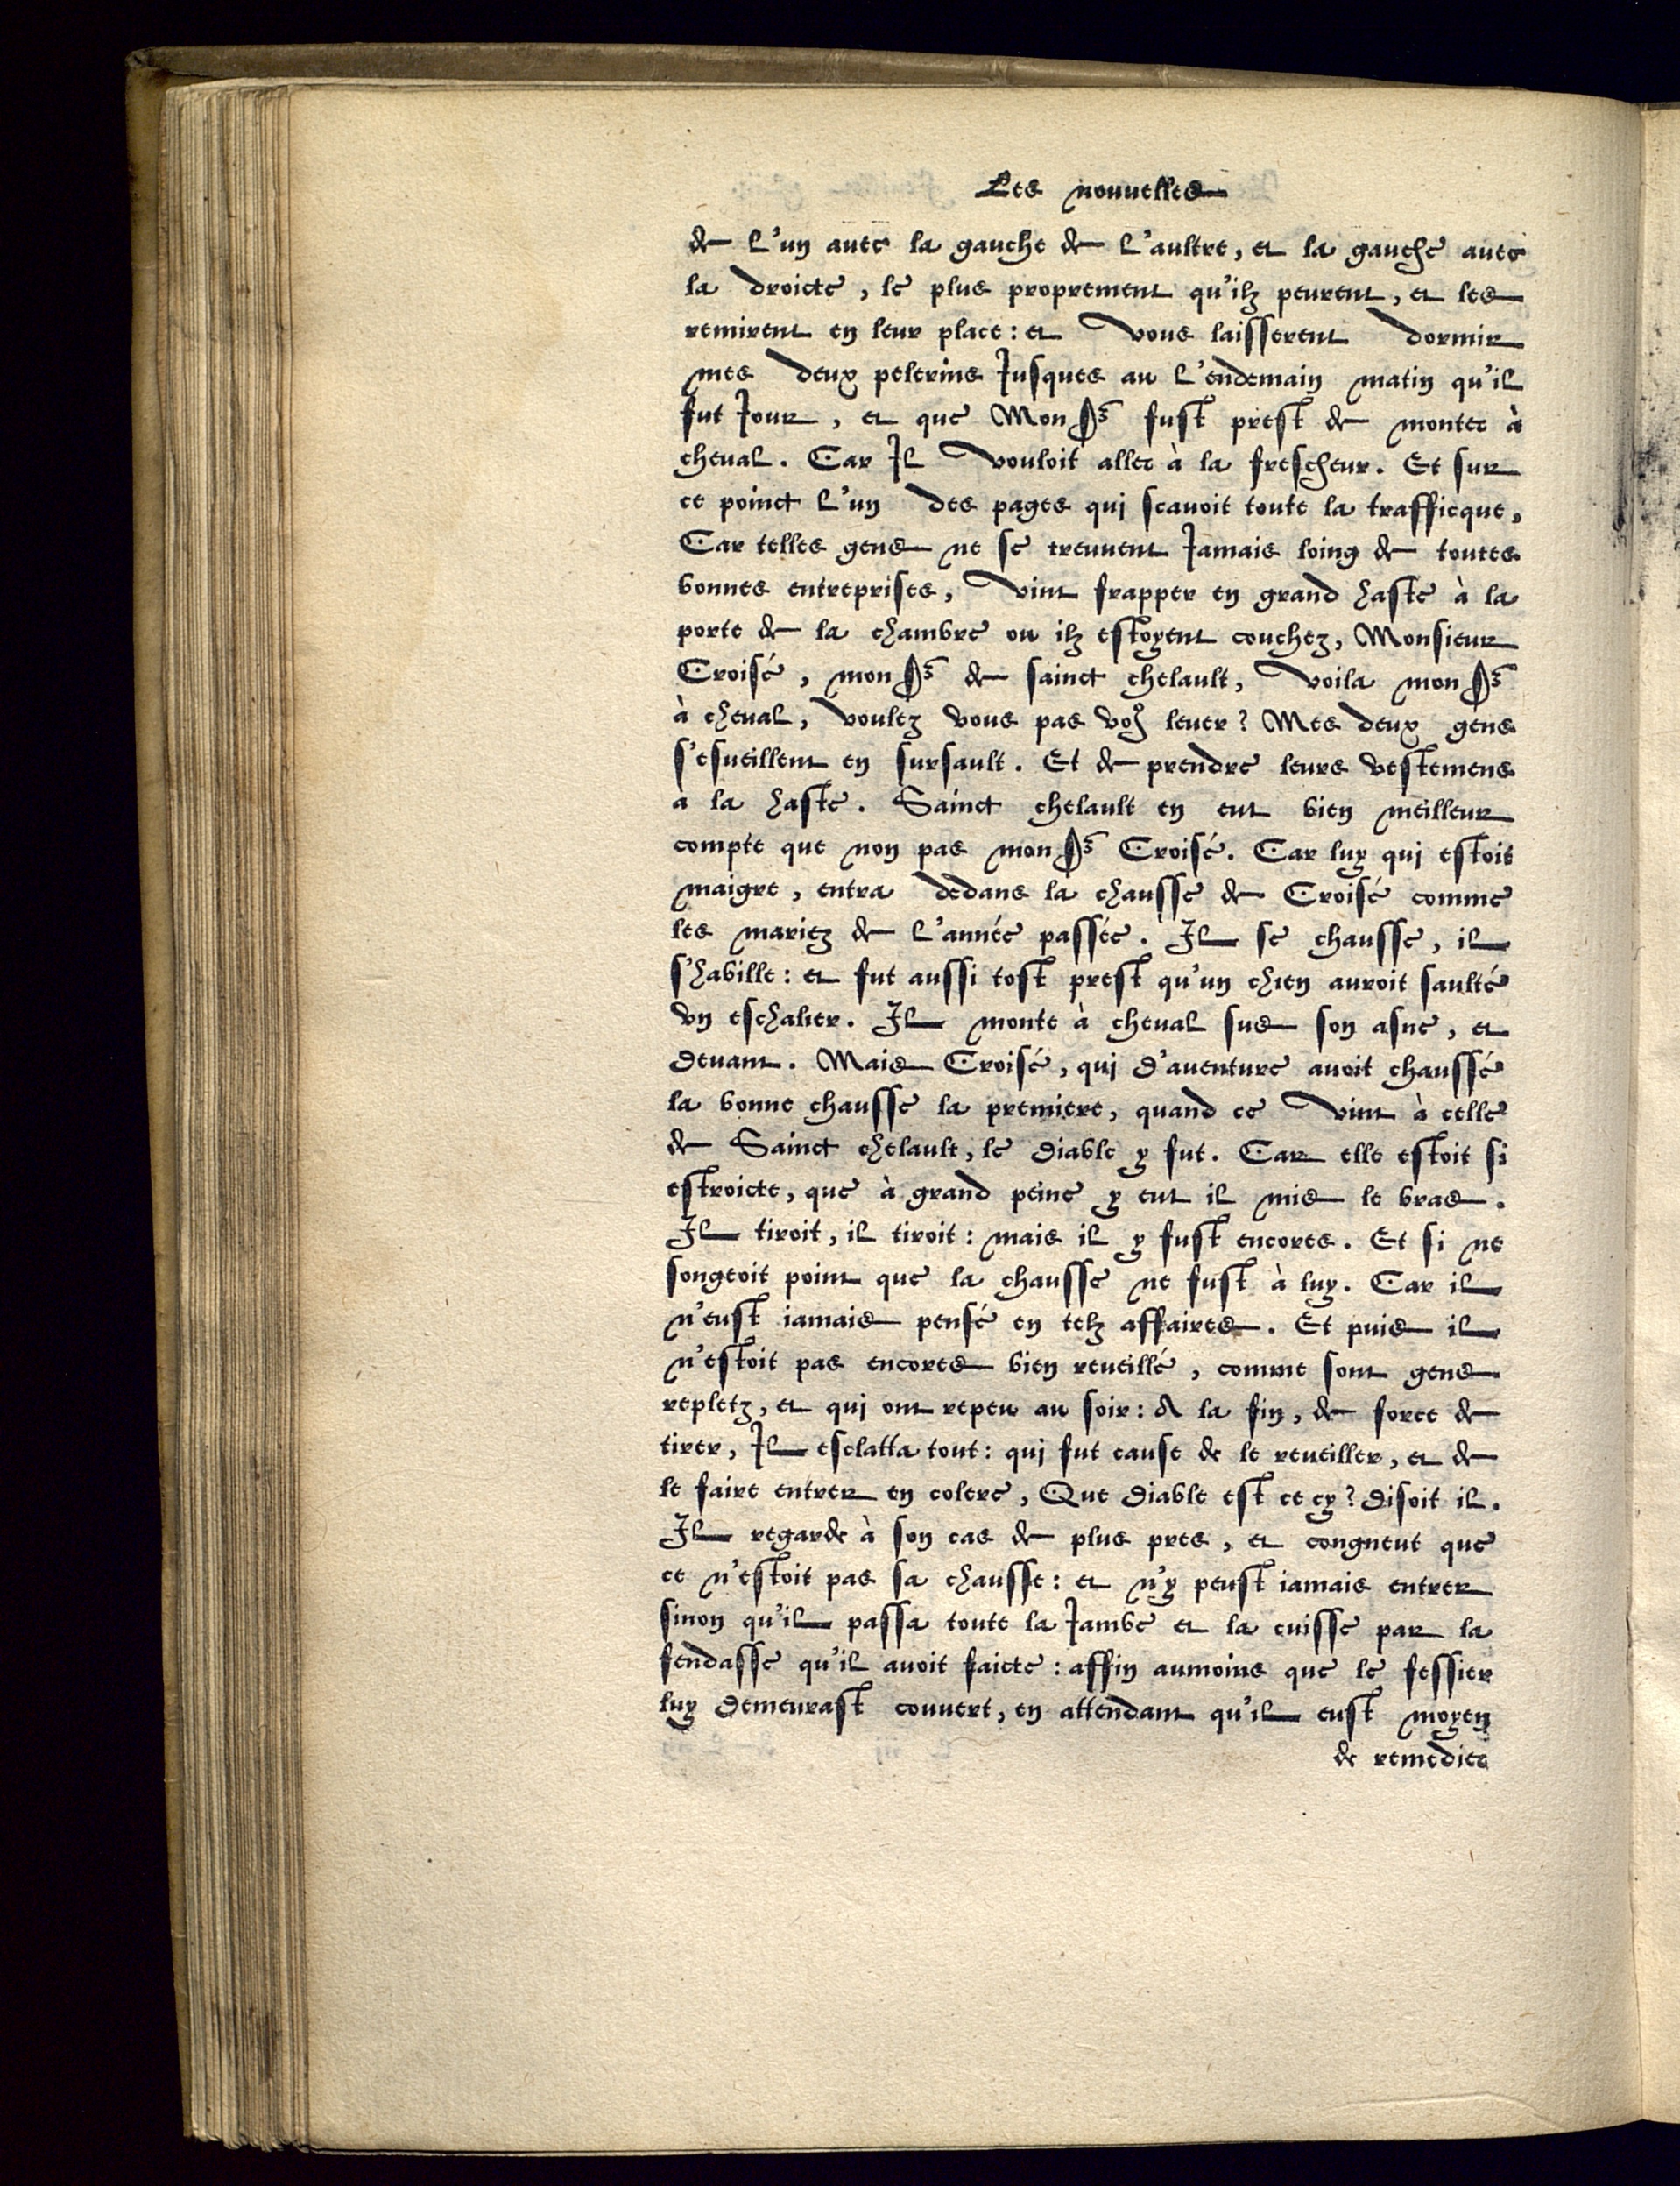 Les nouuelles
de l'un auec la gauche de l'aultre, et la gauche auec
la droicte, le plus proprement qu'ilz peurent, et les
remirent en leur place: et vous laisserent dormir
mes deux pelerins Jusques au l'endemain matin qu'il
fut Jour, et que Mon Sr fust prest de monter à
cheual. Car Il vouloit aller à la frescheur. Et sur
ce poinct l'un des pages qui scauoit toute la trafficque,
Car telles gens ne se treuuent Jamais loing de toutes
bonnes entreprises, vint frapper en grand haste à la
porte de la chambre ou ilz estoyent couchez, Monsieur
Croisé, mon Sr de sainct chelault, voila mon Sr
à cheual, voulez vous pas voꝰ leuer? Mes deux gens
s'esueillent en sursault. Et de prendre leurs vestemens
a la haste. Sainct chelault en eut bien meilleur
compte que non pas mon Sr Croisé. Car luy qui estoit
maigre, entra dedans la chausse de Croisé comme
les mariez de l'année passée. Il se chausse, il
s'habille: et fut aussi tost prest qu'un chien auroit saulté
vn eschalier. Il monte à cheual sus son asne, et
deuant. Mais Croisé, qui d'auenture auoit chaussé
la bonne chausse la premiere, quand ce vint à celle
de Sainct chelault, le diable y fut. Car elle estoit si
estroicte, que à grand peine y eut il mis le bras.
Il tiroit, il tiroit: mais il y fust encores. Et si ne
songeoit point que la chausse ne fust à luy. Car il
n'eust iamais pensé en telz affaires. Et puis il
n'estoit pas encores bien reueillé, comme sont gens
repletz, et qui ont repeu au soir: A la fin, de force de
tirer, Il esclatta tout: qui fut cause de le reueiller, et de
le faire entrer en colere, Que diable est ce cy? disoit il.
Il regarde à son cas de plus pres, et congneut que
ce n'estoit pas sa chausse: et n'y peust iamais entrer
sinon qu'il passa toute la Jambe et la cuisse par la
fendasse qu'il auoit faicte: affin aumoins que le fessier
luy demeurast couuert, en attendant qu'il eust moyen
de remedier